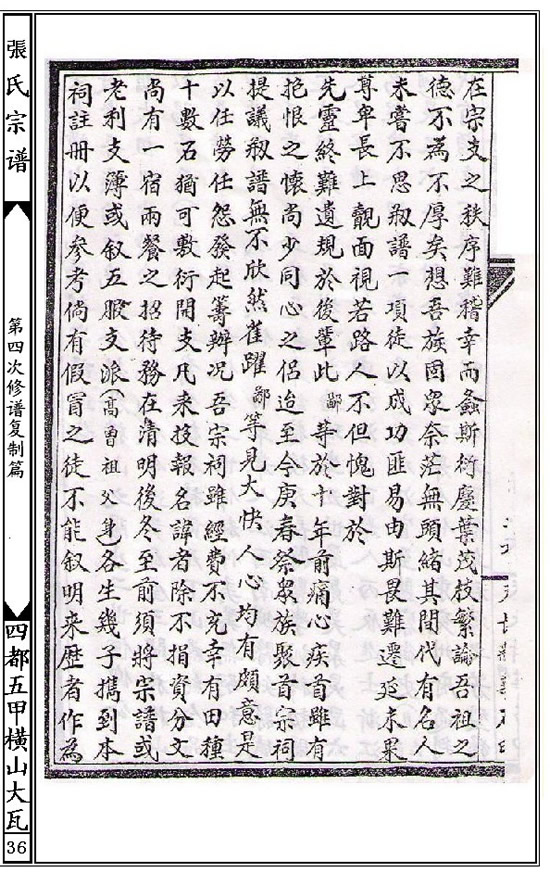 在宗支之秩序難稽幸而螽斯衍慶葉茂枝繁論吾祖之
德不為不厚矣想吾族固眾奈茫無頭緒其間代有名人
未嘗不思刱譜一項徒以成功匪易由斯畏難遷延未果
尊卑長上覿面視若路人不但愧對於
先靈終難遺規於後輩此鄙等於十年前痛心疾首雖有
抱恨之懷尚少同心之侶迨至今庚春祭眾族聚首宗祠
提議刱譜無不欣然雀躍鄙等見大快人心均有願意是
以任勞任怨發起籌辦况吾宗祠雖經費不充幸有田種
十數石猶可敷衍開支凡来投報名諱者除不捐資分文
尚有一宿兩餐之招待務在清明後冬至前須將宗譜或
老利支簿或叙五服支派(高曾祖父身)各生幾子擕到本
祠註冊以便參考倘有假冒之徒不能叙明来歷者作為
張氏宗谱
第四次修谱复制篇
四都五甲橫山大瓦
36